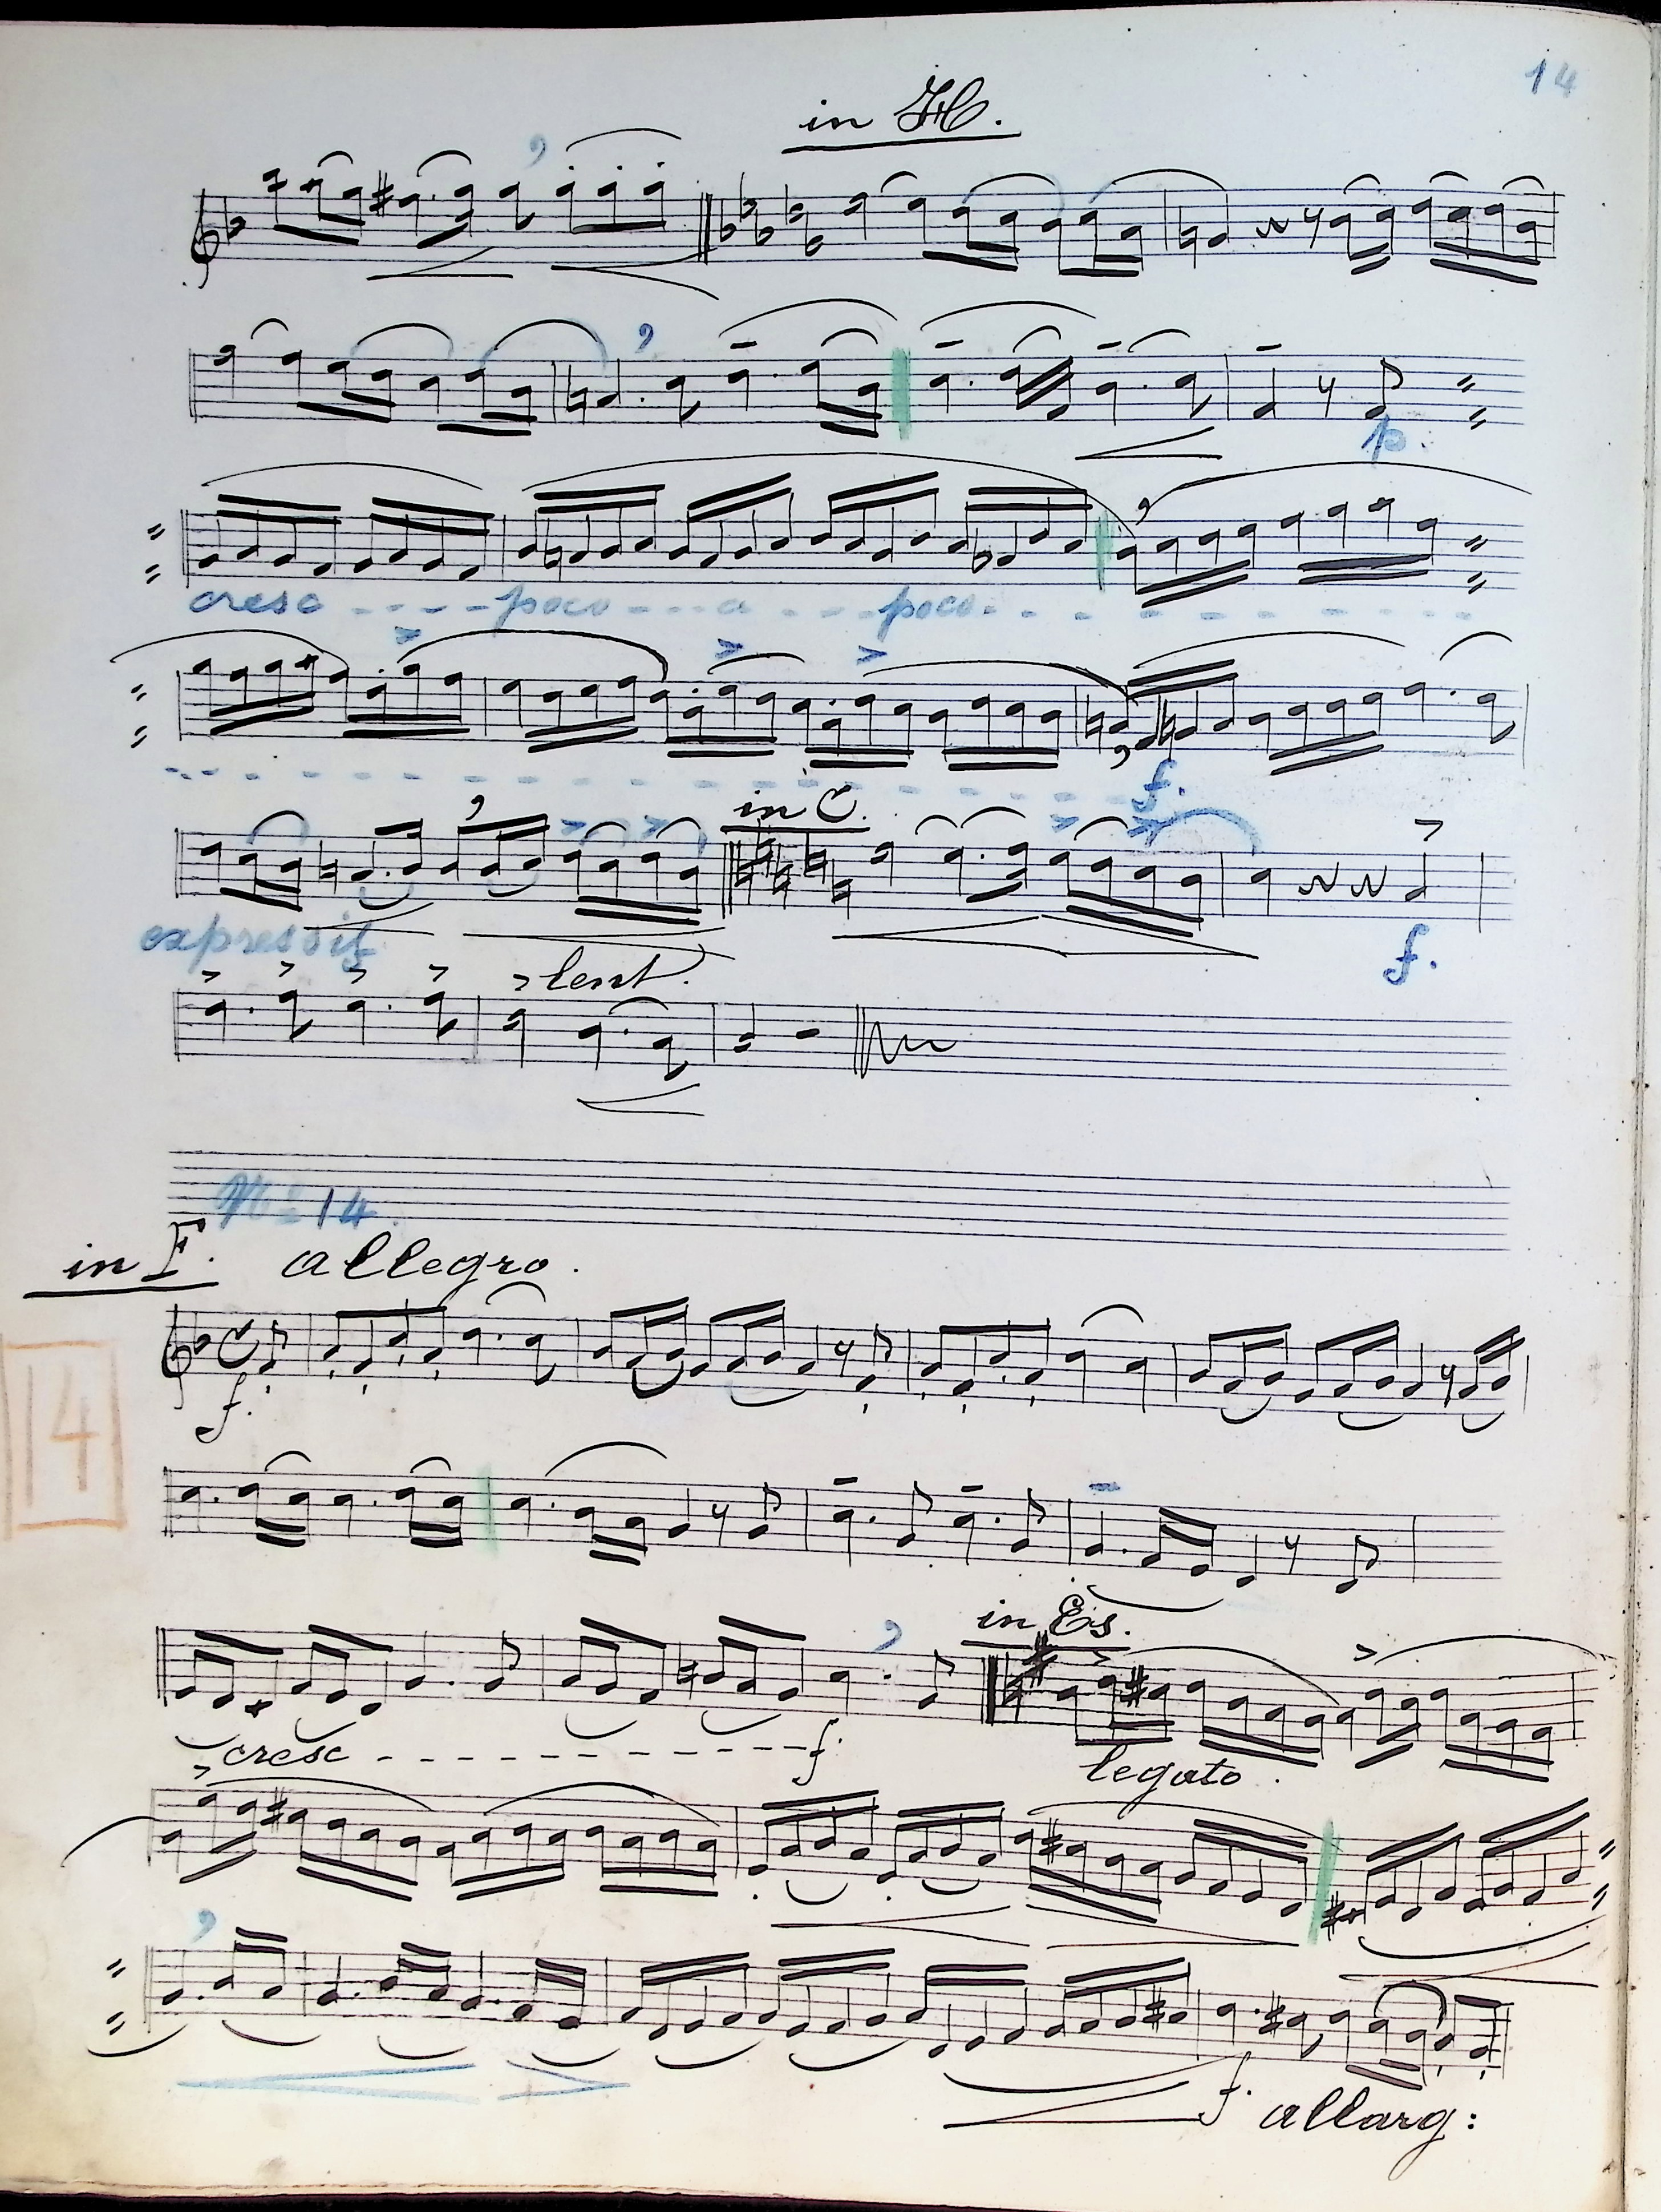 14
in H.
p.
cresc - - - - poco - - - a - - - poco
f.
in C.
expressif
f.
lent.
Nº 14.
in F. allegro.
14
f.
in Es.
cresc - - - - - - - - - - - f.
legato.
f. allarg: